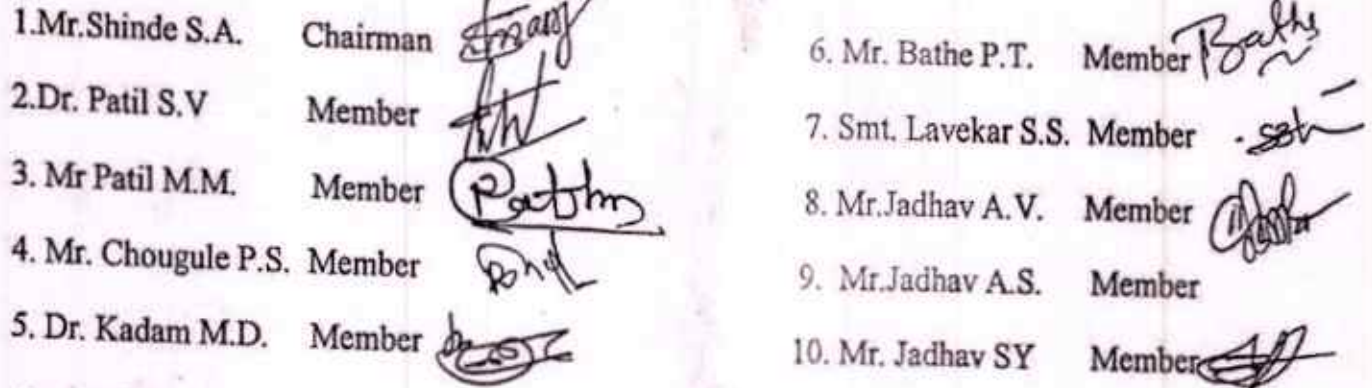 1.Mr.Shinde S.A. Chairman
2.Dr. Patil S.V Member
3. Mr Patil M.M. Member
4. Mr. Chougule P.S. Member
5. Dr. Kadam M.D. Member
6. Mr. Bathe P.T. Member Bathe
7. Smt. Lavekar S.S. Member
8. Mr.Jadhav A.V. Member
9. Mr.Jadhav A.S. Member
10. Mr. Jadhav SY Member